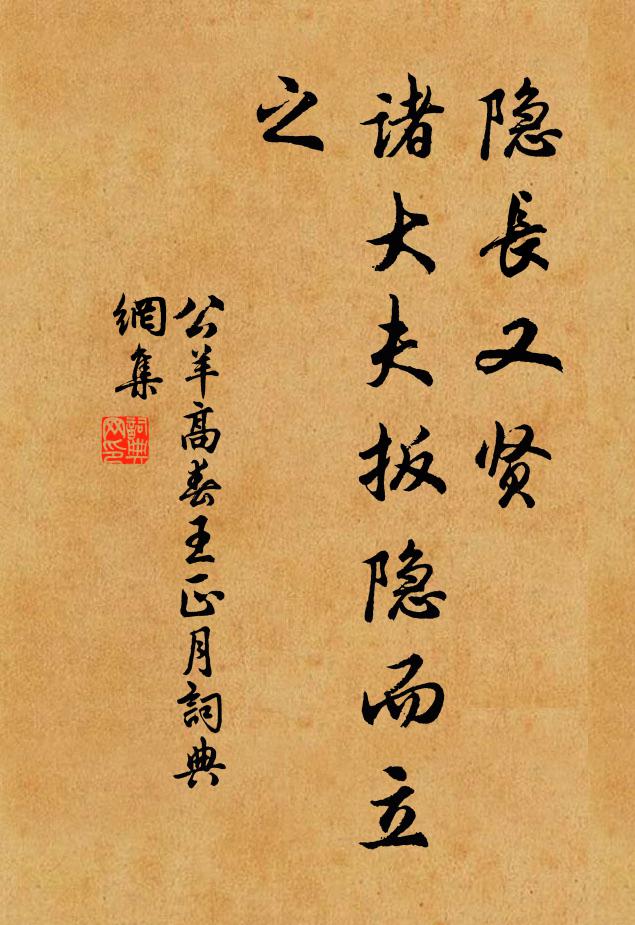 隐長又贤
诸大夫扳隐而立
之
公羊高春王正月詞典
網集
詞典
网印